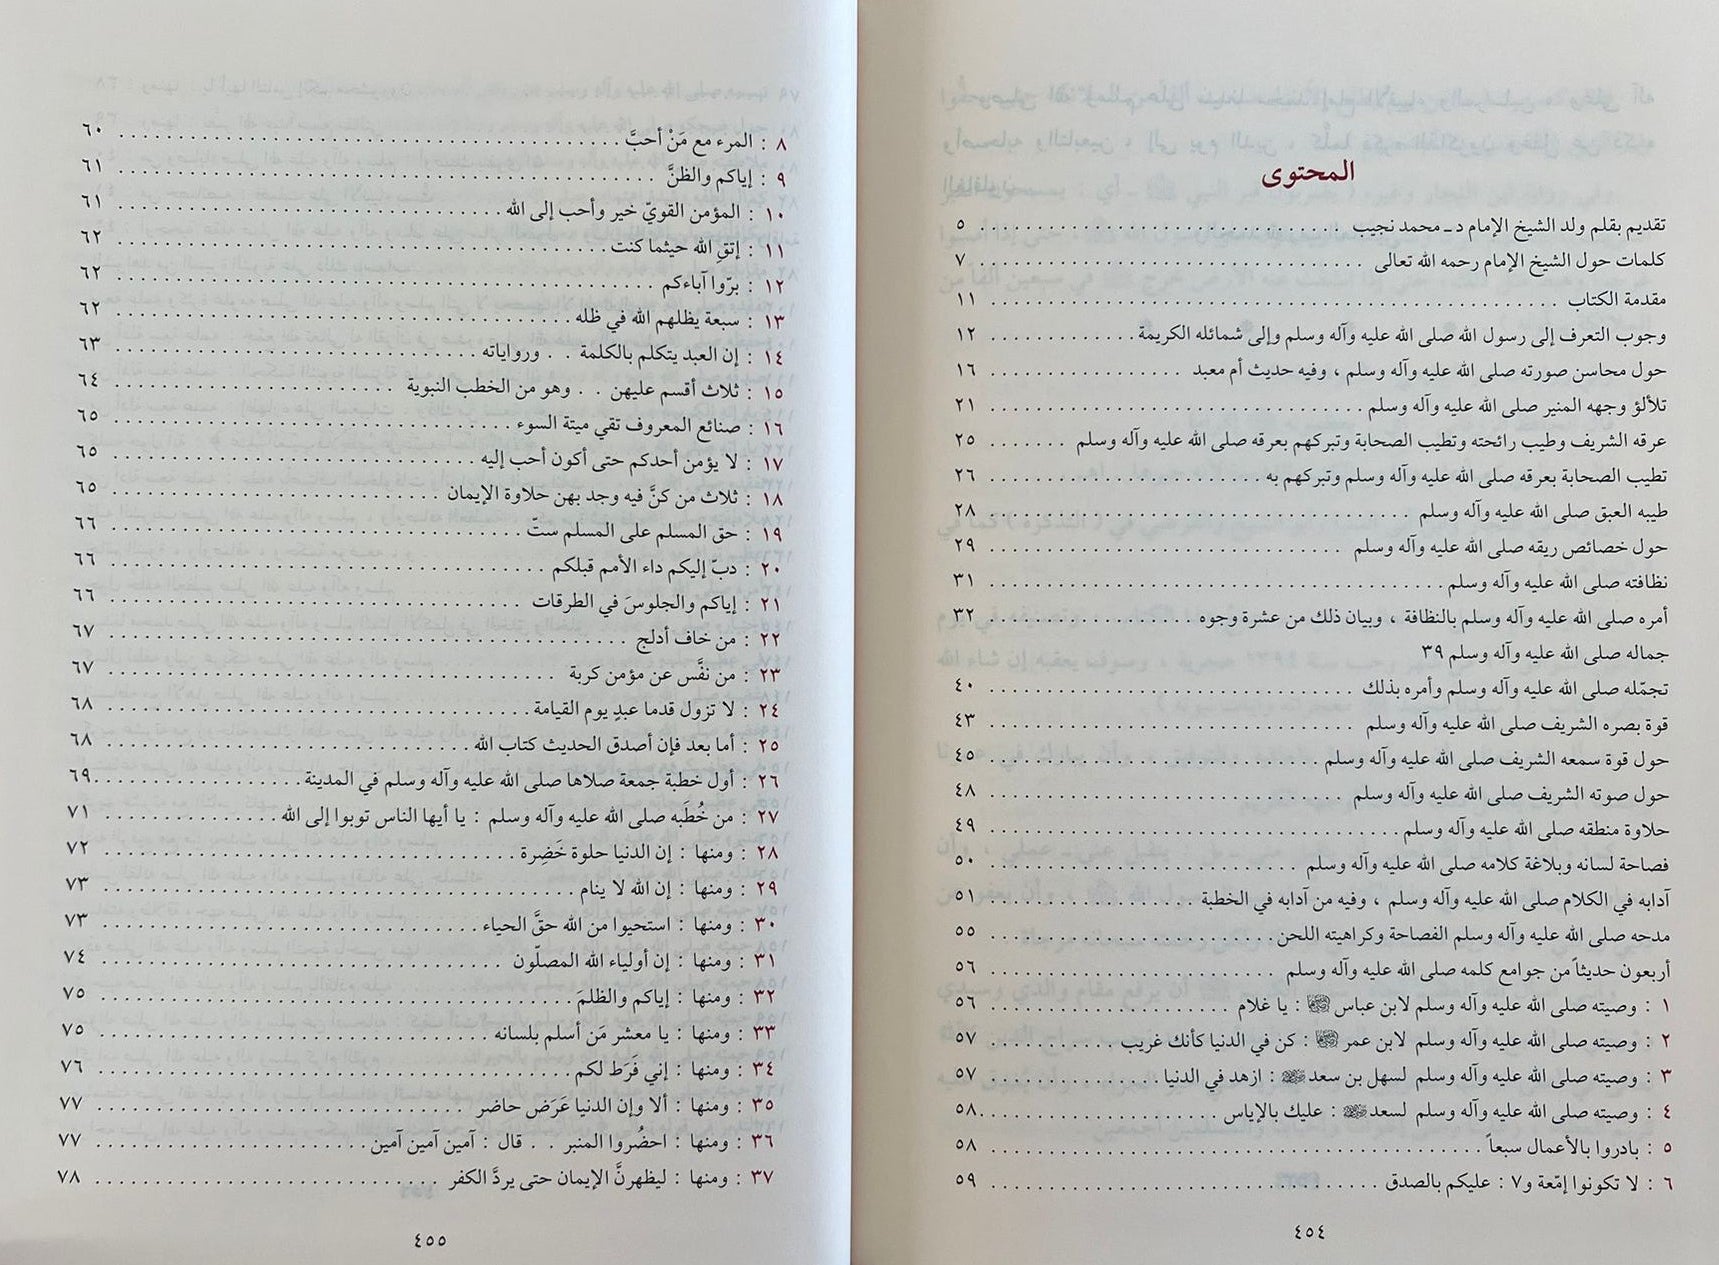 المحتوى
تقديم بقلم ولد الشيخ الإمام د ـ محمد نجيب . . . . . . . . . . ٥
كلمات حول الشيخ الإمام رحمه الله تعالى . . . . . . . . . . ٧
مقدمة الكتاب . . . . . . . . . . ١١
وجوب التعرف إلى رسول الله صلى الله عليه وآله وسلم وإلى شمائله الكريمة . . . . . . . . . . ١٢
حول محاسن صورته صلى الله عليه وآله وسلم ، وفيه حديث أم معبد . . . . . . . . . . ١٦
تلألؤ وجهه المنير صلى الله عليه وآله وسلم . . . . . . . . . . ٢١
عرقه الشريف وطيب رائحته وتطيب الصحابة وتبركهم بعرقه صلى الله عليه وآله وسلم . . . . . . . ٢٥
تطيب الصحابة بعرقه صلى الله عليه وآله وسلم وتبركهم به . . . . . . . . . . ٢٦
طيبه العبق صلى الله عليه وآله وسلم . . . . . . . . . . ٢٨
حول خصائص ريقه صلى الله عليه وآله وسلم . . . . . . . . . . ٢٩
نظافته صلى الله عليه وآله وسلم . . . . . . . . . . ٣١
أمره صلى الله عليه وآله وسلم بالنظافة ، وبيان ذلك من عشرة وجوه . . . . . . . . . . ٣٢
جماله صلى الله عليه وآله وسلم ٣٩
تجمّله صلى الله عليه وآله وسلم وأمره بذلك . . . . . . . . . . ٤٠
قوة بصره الشريف صلى الله عليه وآله وسلم . . . . . . . . . . ٤٣
حول قوة سمعه الشريف صلى الله عليه وآله وسلم . . . . . . . . . . ٤٥
حول صوته الشريف صلى الله عليه وآله وسلم . . . . . . . . . . ٤٨
حلاوة منطقه صلى الله عليه وآله وسلم . . . . . . . . . . ٤٩
فصاحة لسانه وبلاغة كلامه صلى الله عليه وآله وسلم . . . . . . . . . . ٥٠
آدابه في الكلام صلى الله عليه وآله وسلم ، وفيه من آدابه في الخطبة . . . . . . . . . . ٥١
مدحه صلى الله عليه وآله وسلم الفصاحة وكراهيته اللحن . . . . . . . . . . ٥٥
أربعون حديثاً من جوامع كلمه صلى الله عليه وآله وسلم . . . . . . . . . . ٥٦
١ : وصيته صلى الله عليه وآله وسلم لابن عباس : يا غلام . . . . . . . . . . ٥٦
٢ : وصيته صلى الله عليه وآله وسلم لابن عمر : كن في الدنيا كأنك غريب . . . . . . . . . . ٥٧
٣ : وصيته صلى الله عليه وآله وسلم لسهل بن سعد : ازهد في الدنيا . . . . . . . . . . ٥٧
٤ : وصيته صلى الله عليه وآله وسلم لسعد : عليك بالإياس . . . . . . . . . . ٥٨
٥ : بادروا بالأعمال سبعاً . . . . . . . . . . ٥٨
٦ : لا تكونوا إمّعة و٧ : عليكم بالصدق . . . . . . . . . . ٥٩
٤٥٤
٨ : المرء مع مَنْ أحبَّ . . . . . . . . . . ٦٠
٩ : إياكم والظنَّ . . . . . . . . . . ٦١
١٠ : المؤمن القويّ خير وأحب إلى الله . . . . . . . . . . ٦١
١١ : إتقِ الله حيثما كنت . . . . . . . . . . ٦٢
١٢ : برّوا آباءكم . . . . . . . . . . ٦٢
١٣ : سبعة يظلهم الله في ظله . . . . . . . . . . ٦٢
١٤ : إن العبد يتكلم بالكلمة . . ورواياته . . . . . . . . . . ٦٣
١٥ : ثلاث أقسم عليهن . . وهو من الخطب النبوية . . . . . . . . . . ٦٤
١٦ : صنائع المعروف تقي ميتة السوء . . . . . . . . . . ٦٥
١٧ : لا يؤمن أحدكم حتى أكون أحب إليه . . . . . . . . . . ٦٥
١٨ : ثلاث من كنَّ فيه وجد بهن حلاوة الإيمان . . . . . . . . . . ٦٥
١٩ : حق المسلم على المسلم ستّ . . . . . . . . . . ٦٦
٢٠ : دبّ إليكم داء الأمم قبلكم . . . . . . . . . . ٦٦
٢١ : إياكم والجلوسَ في الطرقات . . . . . . . . . . ٦٦
٢٢ : من خاف أدلج . . . . . . . . . . ٦٧
٢٣ : من نفَّس عن مؤمن كربة . . . . . . . . . . ٦٧
٢٤ : لا تزول قدما عبدٍ يوم القيامة . . . . . . . . . . ٦٨
٢٥ : أما بعد فإن أصدق الحديث كتاب الله . . . . . . . . . . ٦٨
٢٦ : أول خطبة جمعة صلاها صلى الله عليه وآله وسلم في المدينة . . . . . . . . . . ٦٩
٢٧ : من خُطَبه صلى الله عليه وآله وسلم : يا أيها الناس توبوا إلى الله . . . . . . . . . . ٧١
٢٨ : ومنها : إن الدنيا حلوة خَضِرة . . . . . . . . . . ٧٢
٢٩ : ومنها : إن الله لا ينام . . . . . . . . . . ٧٣
٣٠ : ومنها : استحيوا من الله حقَّ الحياء . . . . . . . . . . ٧٣
٣١ : ومنها : إن أولياء الله المصلّون . . . . . . . . . . ٧٤
٣٢ : ومنها : إياكم والظلمَ . . . . . . . . . . ٧٥
٣٣ : ومنها : يا معشر مَن أسلم بلسانه . . . . . . . . . . ٧٥
٣٤ : ومنها : إني فَرَط لكم . . . . . . . . . . ٧٦
٣٥ : ومنها : ألا وإن الدنيا عَرَض حاضر . . . . . . . . . . ٧٧
٣٦ : ومنها : احضُروا المنبر . . قال : آمين آمين آمين . . . . . . . . . . ٧٧
٣٧ : ومنها : ليظهرنَّ الإيمان حتى يردَّ الكفر . . . . . . . . . . ٧٨
٤٥٥